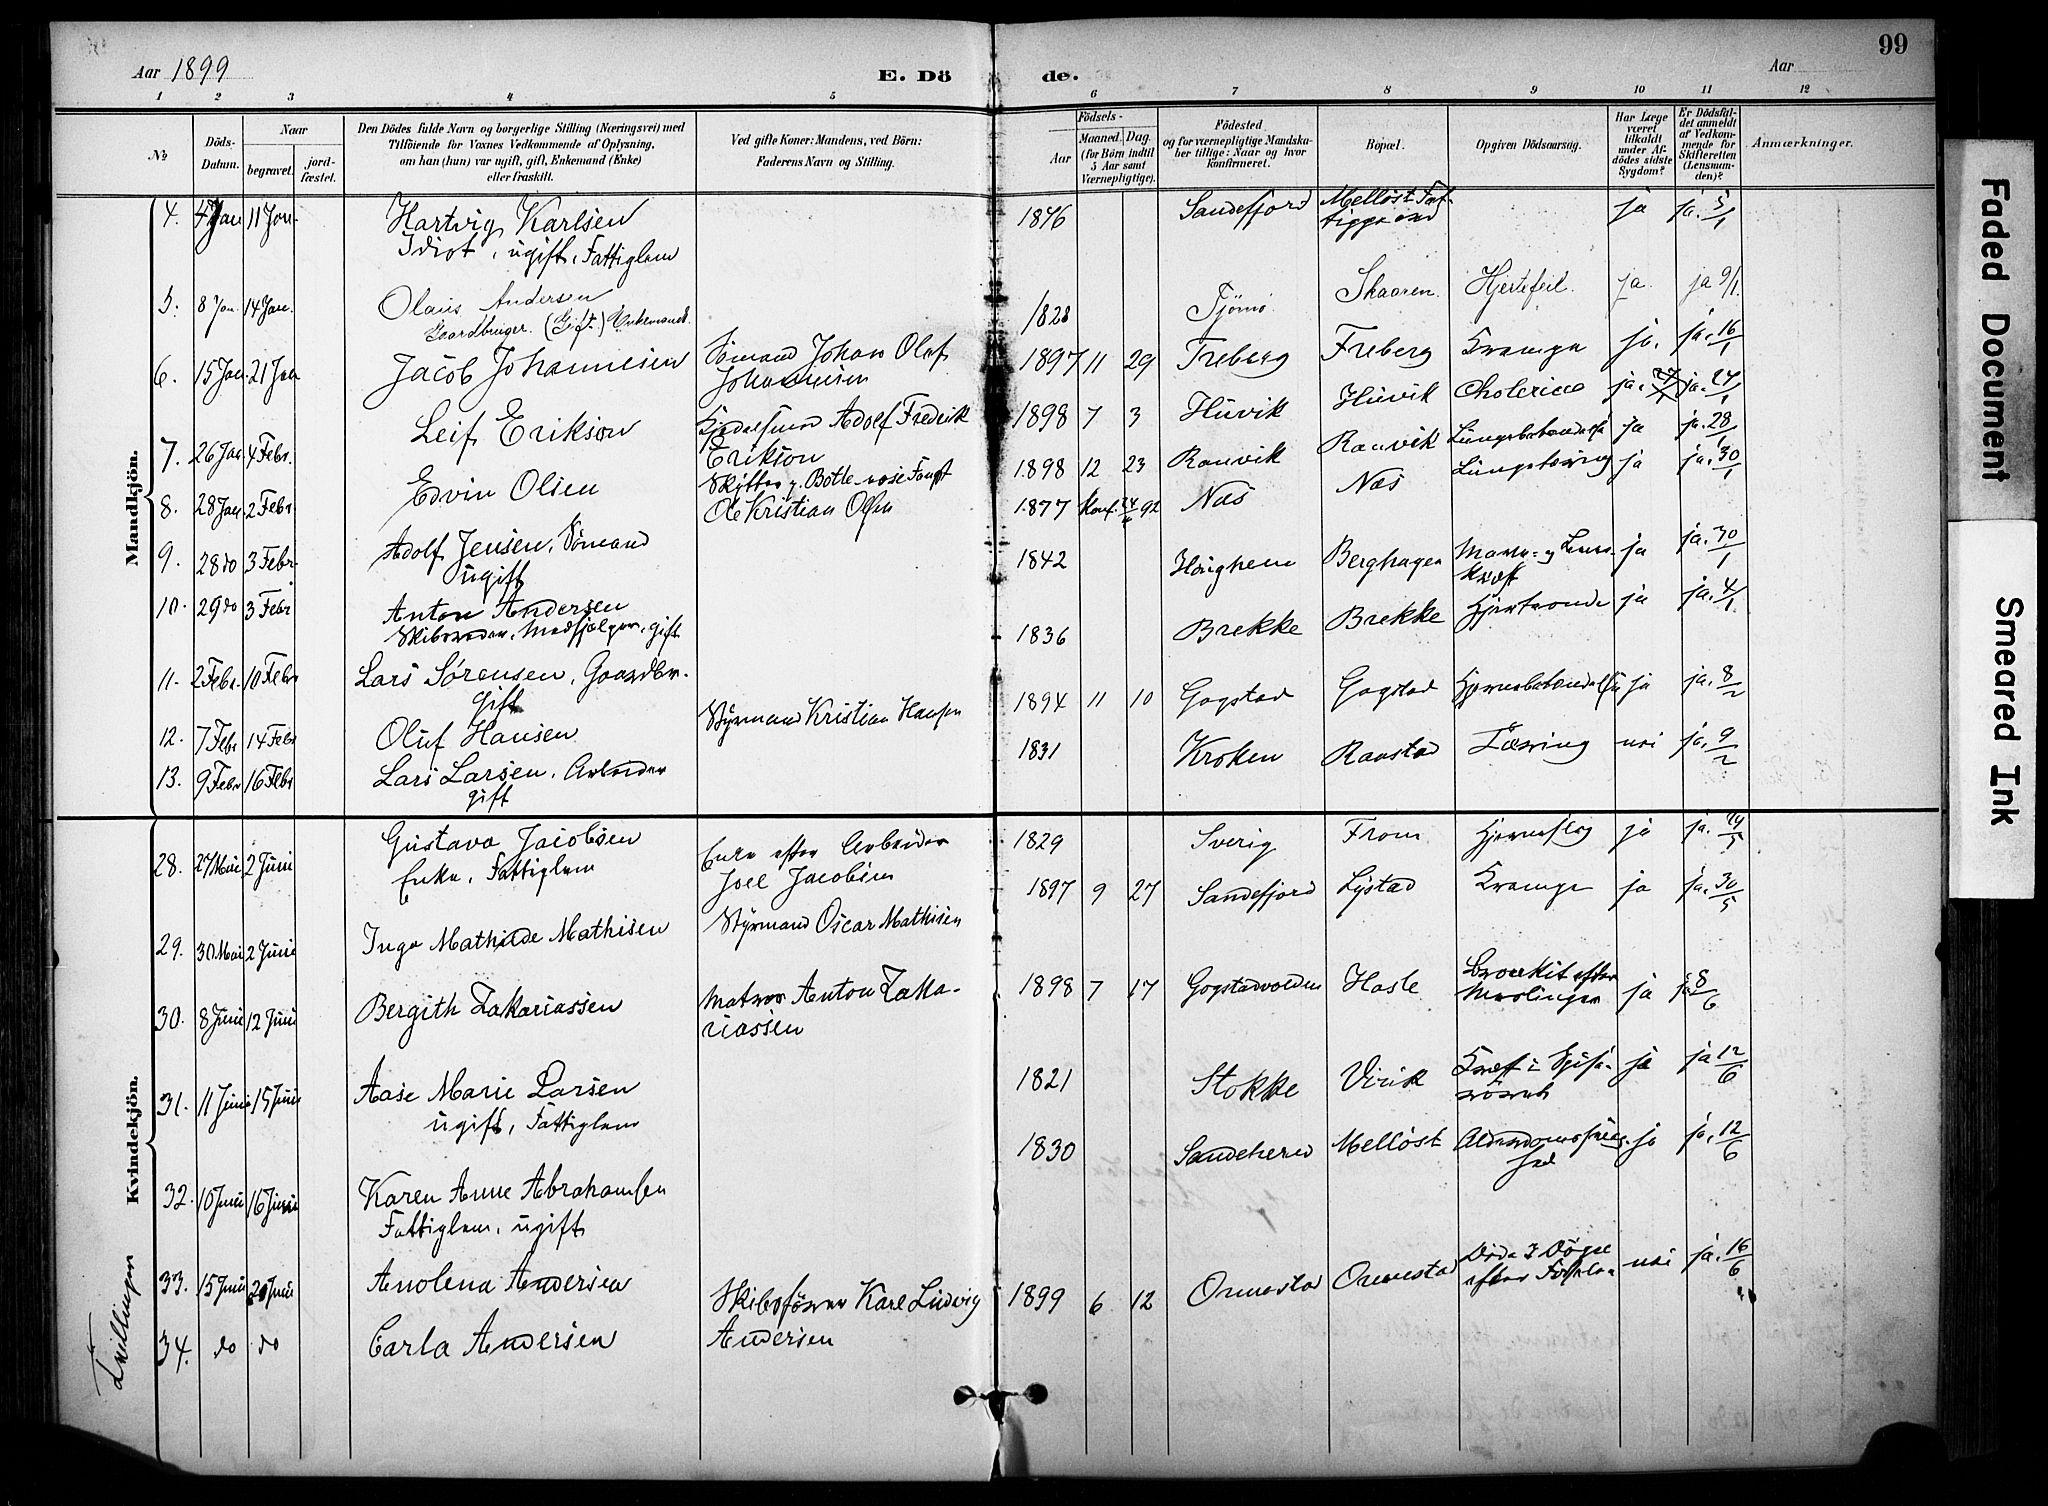 Aar 1899
E. Döde.
Aar
99
1 2 3 4 5 6 7 8 9 10 11 12
No
Döds-Datum.
Naar
begravet.
jord-fæstet.
Den Dödes fulde Navn og borgerlige Stilling (Næringsvei) med
Tilföiende for Voxnes Vedkommende af Oplysning,
om han (hun) var ugift, gift, Enkemand (Enke)
eller fraskilt.
Ved gifte Koner: Mandens, ved Börn:
Faderens Navn og Stilling.
Födsels-
Aar
Maaned. Dag.
(for Börn indtil
5 Aar samt
Værnepligtige).
Födested
og for værnepligtige Mandska-
ber tillige: Naar og hvor
konfirmeret.
Bopæl.
Opgiven Dödsaarsag.
Har Læge
været
tilkaldt
under Af-
dödes sidste
Sygdom?
Er Dödsfal-
det anmeldt
af Vedkom-
mende for
Skifteretten
(Lensman-
den)?
Anmærkninger.
Mandkjön.
4. 4 Jan 11 Jan. Hartvig Karlsen 1846 Sandefjord Melløst Fat- ja ja. 5/1
Idiot, ugift, Fattiglem tiggaard
5. 8 Jan. 14 Jan. Olaus Andersen 1828 Tjømø Skaaren. Hjertefeil. ja. ja 9/1.
Gaardbruger. (Gift.) Enkemand.
6. 15 Jan. 21 Jan Jacob Johannesen Sømand Johan Olaf 1897 11 29 Freberg Freberg Krampe ja. ja. 16/1
Johannesen
7. 26 Jan. 4 Febr. Leif Erikson Adolf Fredrik 1898 7 3 Huvik Huvik Cholerine ja. ja. 27/1
Erikson
8. 28 Jan. 2 Febr. Edvin Olsen Skytter p. Bottlenose Fangst 1898 12 23 Ranvik Ranvik Lungebetændelse ja ja. 28/1
Ole Kristian Olsen
9. 28 do 3 Febr. Adolf Jensen, Sømand 1877 Konf. 92 Næs Næs Lungetæring ja ja. 30/1
ugift
10. 29 do 3 Febr Anton Andersen 1842 Haughem Berghagen Mave- og Lever- ja ja. 30/1
Skibsreder, Medhjælper, gift Kræft
11. 2 Febr. 10 Febr Lars Sørensen, Gaardbr. 1836 Brekke Brekke Hjerteonde ja ja. 4/1
Gift
12. 7 Febr 14 Febr Oluf Hansen Styrmand Kristian Hansen 1894 11 10 Gogstad Gogstad Hjernebetændelse ja ja. 8/2
13. 9 Febr 16 Febr Lars Larsen, Arbeider 1831 Kroken Raastad Tæring nei ja. 9/2
gift
Kvindekjön.
28. 27 Mai 2 Juni Gustava Jacobsen Enke efter Arbeider 1829 Sverig Fram Hjerneslag ja ja. 29/5
Enke, Fattiglem Joel Jacobsen
29. 30 Mai 2 Juni Inga Mathilde Mathisen Styrmand Oscar Mathisen 1897 9 27 Sandefjord Lystad Krampe ja ja. 30/5
30. 8 Juni 12 Juni Bergith Zakariassen Matros Anton Zaka- 1898 7 17 Gogstadvolden Hasle Bronkit efter ja ja 8/6
riassen Meslinger
31. 11 Juni 15 Juni Aase Marie Larsen 1821 Stokke Virik Kræft i Spise- ja ja 12/6
ugift, Fattiglem rørret
32. 10 Juni 16 Juni Karen Anne Abrahamsen 1830 Sandeherred Melløst Alderdomssvag- ja ja. 12/6
Fattiglem, ugift hed
Tvillinger
33. 15 Juni 20 Juni Anolena Andersen Skibsfører Karl Ludvig 1899 6 12 Ormestad Ormestad Døde 3 Døgn nei ja. 16/6
efter Fødselen
34. do do Carla Andersen Andersen
Faded Document
Smeared Ink